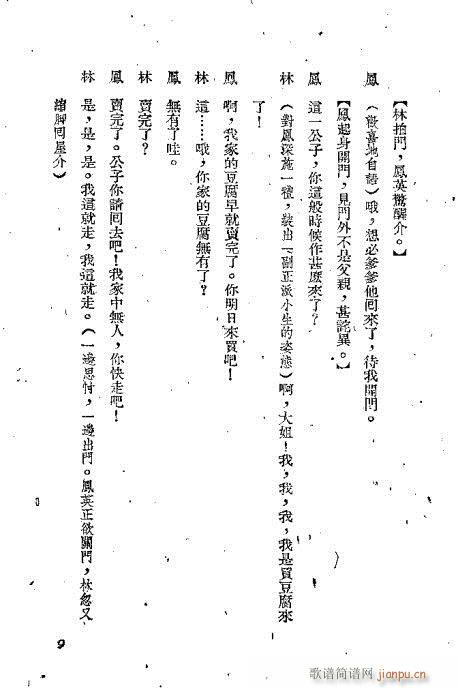 【林拍門，鳳英驚醒介。】
鳳　（歡喜地自語）哦，想必爹爹他回來了，待我開門。
【鳳起身開門，見門外不是父親，甚詫異。】
鳳　這一公子，你這般時候作甚麽來了？
林　（對鳳深施一禮，裝出一副正派小生的姿態）啊，大姐！我，我，我，我是買豆腐來
了！
鳳　啊，我家的豆腐早就賣完了。你明日來買吧！
林　這……哦，你家的豆腐無有了？
鳳　無有了哇。
林　賣完了？
鳳　賣完了。公子你請回去吧！我家中無人，你快走吧！
林　是，是，是。我這就走，我這就走。（一邊思忖，一邊出門。鳳英正欲關門，林忽又
縮脚回屋介）
9
歌谱简谱网
jianpu.cn